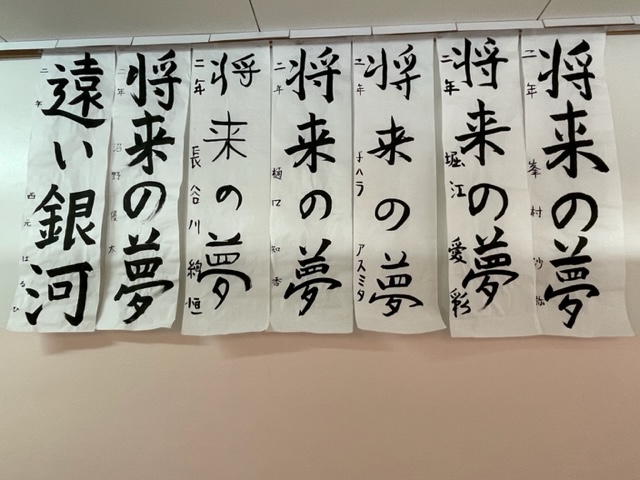 将来の夢
二年 峯村 沙弥
将来の夢
二年 堀江 愛彩
将来の夢
二年 チハラ アスミタ
将来の夢
二年 樋口 知香
将来の夢
二年 長谷川 絢恒
将来の夢
二年 沼野 優太
遠い銀河
二年 西元 はるひ